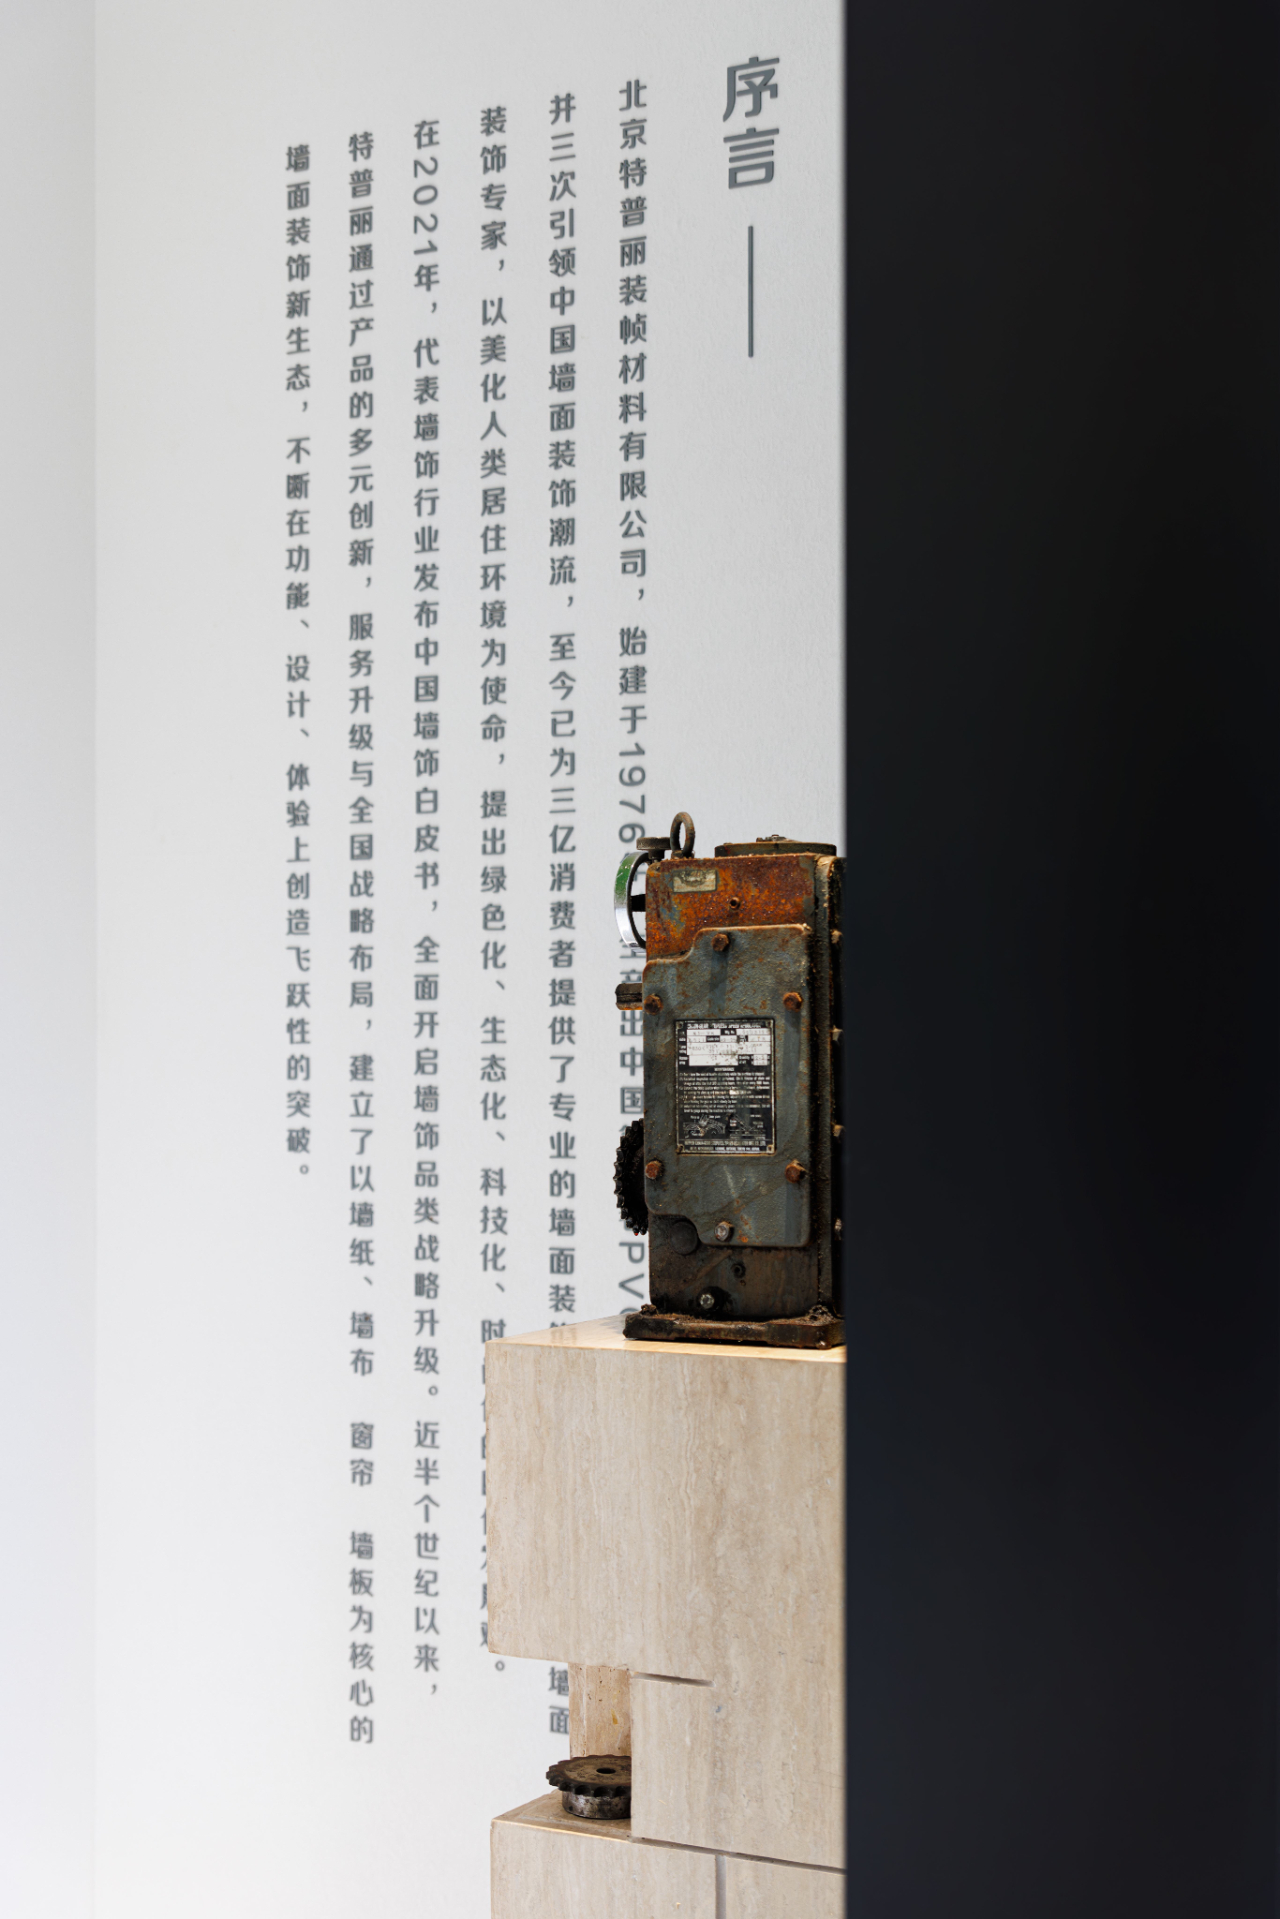 序言
北京特普丽装帧材料有限公司，始建于1976 出中国 PV
并三次引领中国墙面装饰潮流，至今已为三亿消费者提供了专业的墙面装 墙面
装饰专家，以美化人类居住环境为使命，提出绿色化、生态化、科技化、时 。
在2021年，代表墙饰行业发布中国墙饰白皮书，全面开启墙饰品类战略升级。近半个世纪以来，
特普丽通过产品的多元创新，服务升级与全国战略布局，建立了以墙纸、墙布 窗帘 墙板为核心的
墙面装饰新生态，不断在功能、设计、体验上创造飞跃性的突破。